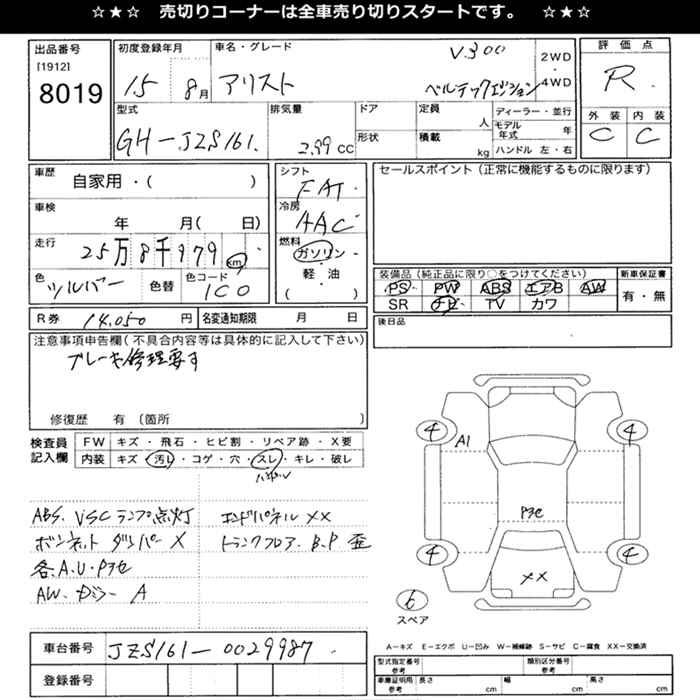 ☆★☆ 売切りコーナーは全車売り切りスタートです。 ☆★☆
出品番号
[1912]
8019
初度登録年月
15 8月
車名・グレード
アリスト
V300
ベルテックスエディション
2WD
・
4WD
評価点
R
外装 内装
C C
型式
GH-JZS161.
排気量
2.99 CC
ドア
形状
定員
人
積載
kg
ディーラー・並行
モデル年式 年
ハンドル 左・右
車歴
自家用・( )
車検
年 月( 日)
走行
25万8千979 km
色
シルバー
色替
色コード
1C0
シフト
FAT
冷房
AAC
燃料
ガソリン
・
軽・油
( )
セールスポイント(正常に機能するものに限ります)
装備品(純正品に限り○をつけてください)
PS PW ABS エアB AW
SR ナビ TV カワ
新車保証書
有・無
R券 14,050 円
名変通知期限 月 日
後日品
注意事項申告欄(不具合内容等は具体的に記入して下さい)
ブレーキ修理要す
修復歴 有 (箇所 )
検査員
記入欄
FW キズ・飛石・ヒビ割・リペア跡・X要
内装 キズ・汚レ・コゲ・穴・スレ・キレ・破レ
ABS. VSCランプ点灯
ボンネットダンパーX
各A.U・Pヨセ
A
エンドパネルXX
トランクフロア. B.P 歪
4 A1 4
Pヨセ
4 XX 4
6
スペア
A-キズ E-エクボ U-凹み W-補修跡 S-サビ C-腐食 XX-交換済
車台番号 JZS161-0029987
登録番号
型式指定番号 参考
類別区分番号 参考
車庫証明用 参考 長さ cm 幅 cm 高さ cm